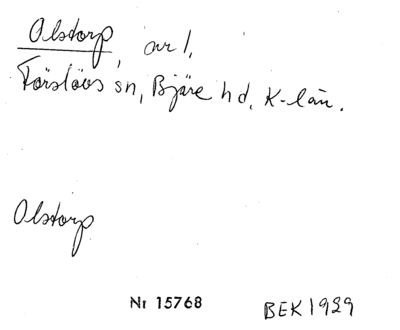 Olstorp, av 1,
Förslövs sn, Bjäre hd, K-län.
Olstorp
Nr 15768
BEK 1929